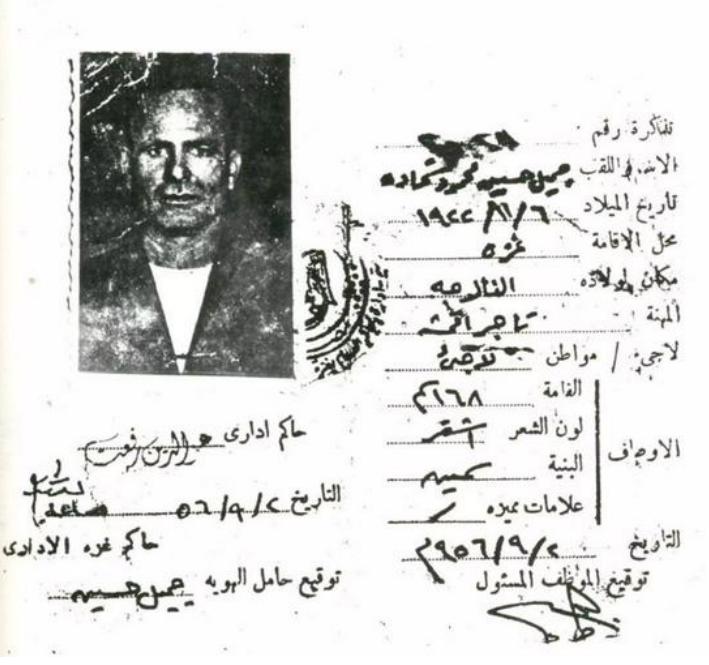 تذكرة رقم
الاسم واللقب جميل حسين محمود حماده
تاريخ الميلاد ١٩٢٢/٦/٦
محل الاقامة غزه
مكان الولاده الفالوجه
المهنة تاجر
لاجىء / مواطن لاجئ
الاوصاف
القامة ١٦٨ سم
لون الشعر اشقر
البنية
علامات مميزه
التاريخ ١٩٥٦/٩/٢م
توقيع الموظف المسئول
حاكم ادارى
التاريخ ٥٦/٩/٢
حاكم غزه الادارى
توقيع حامل الهويه جميل حسين